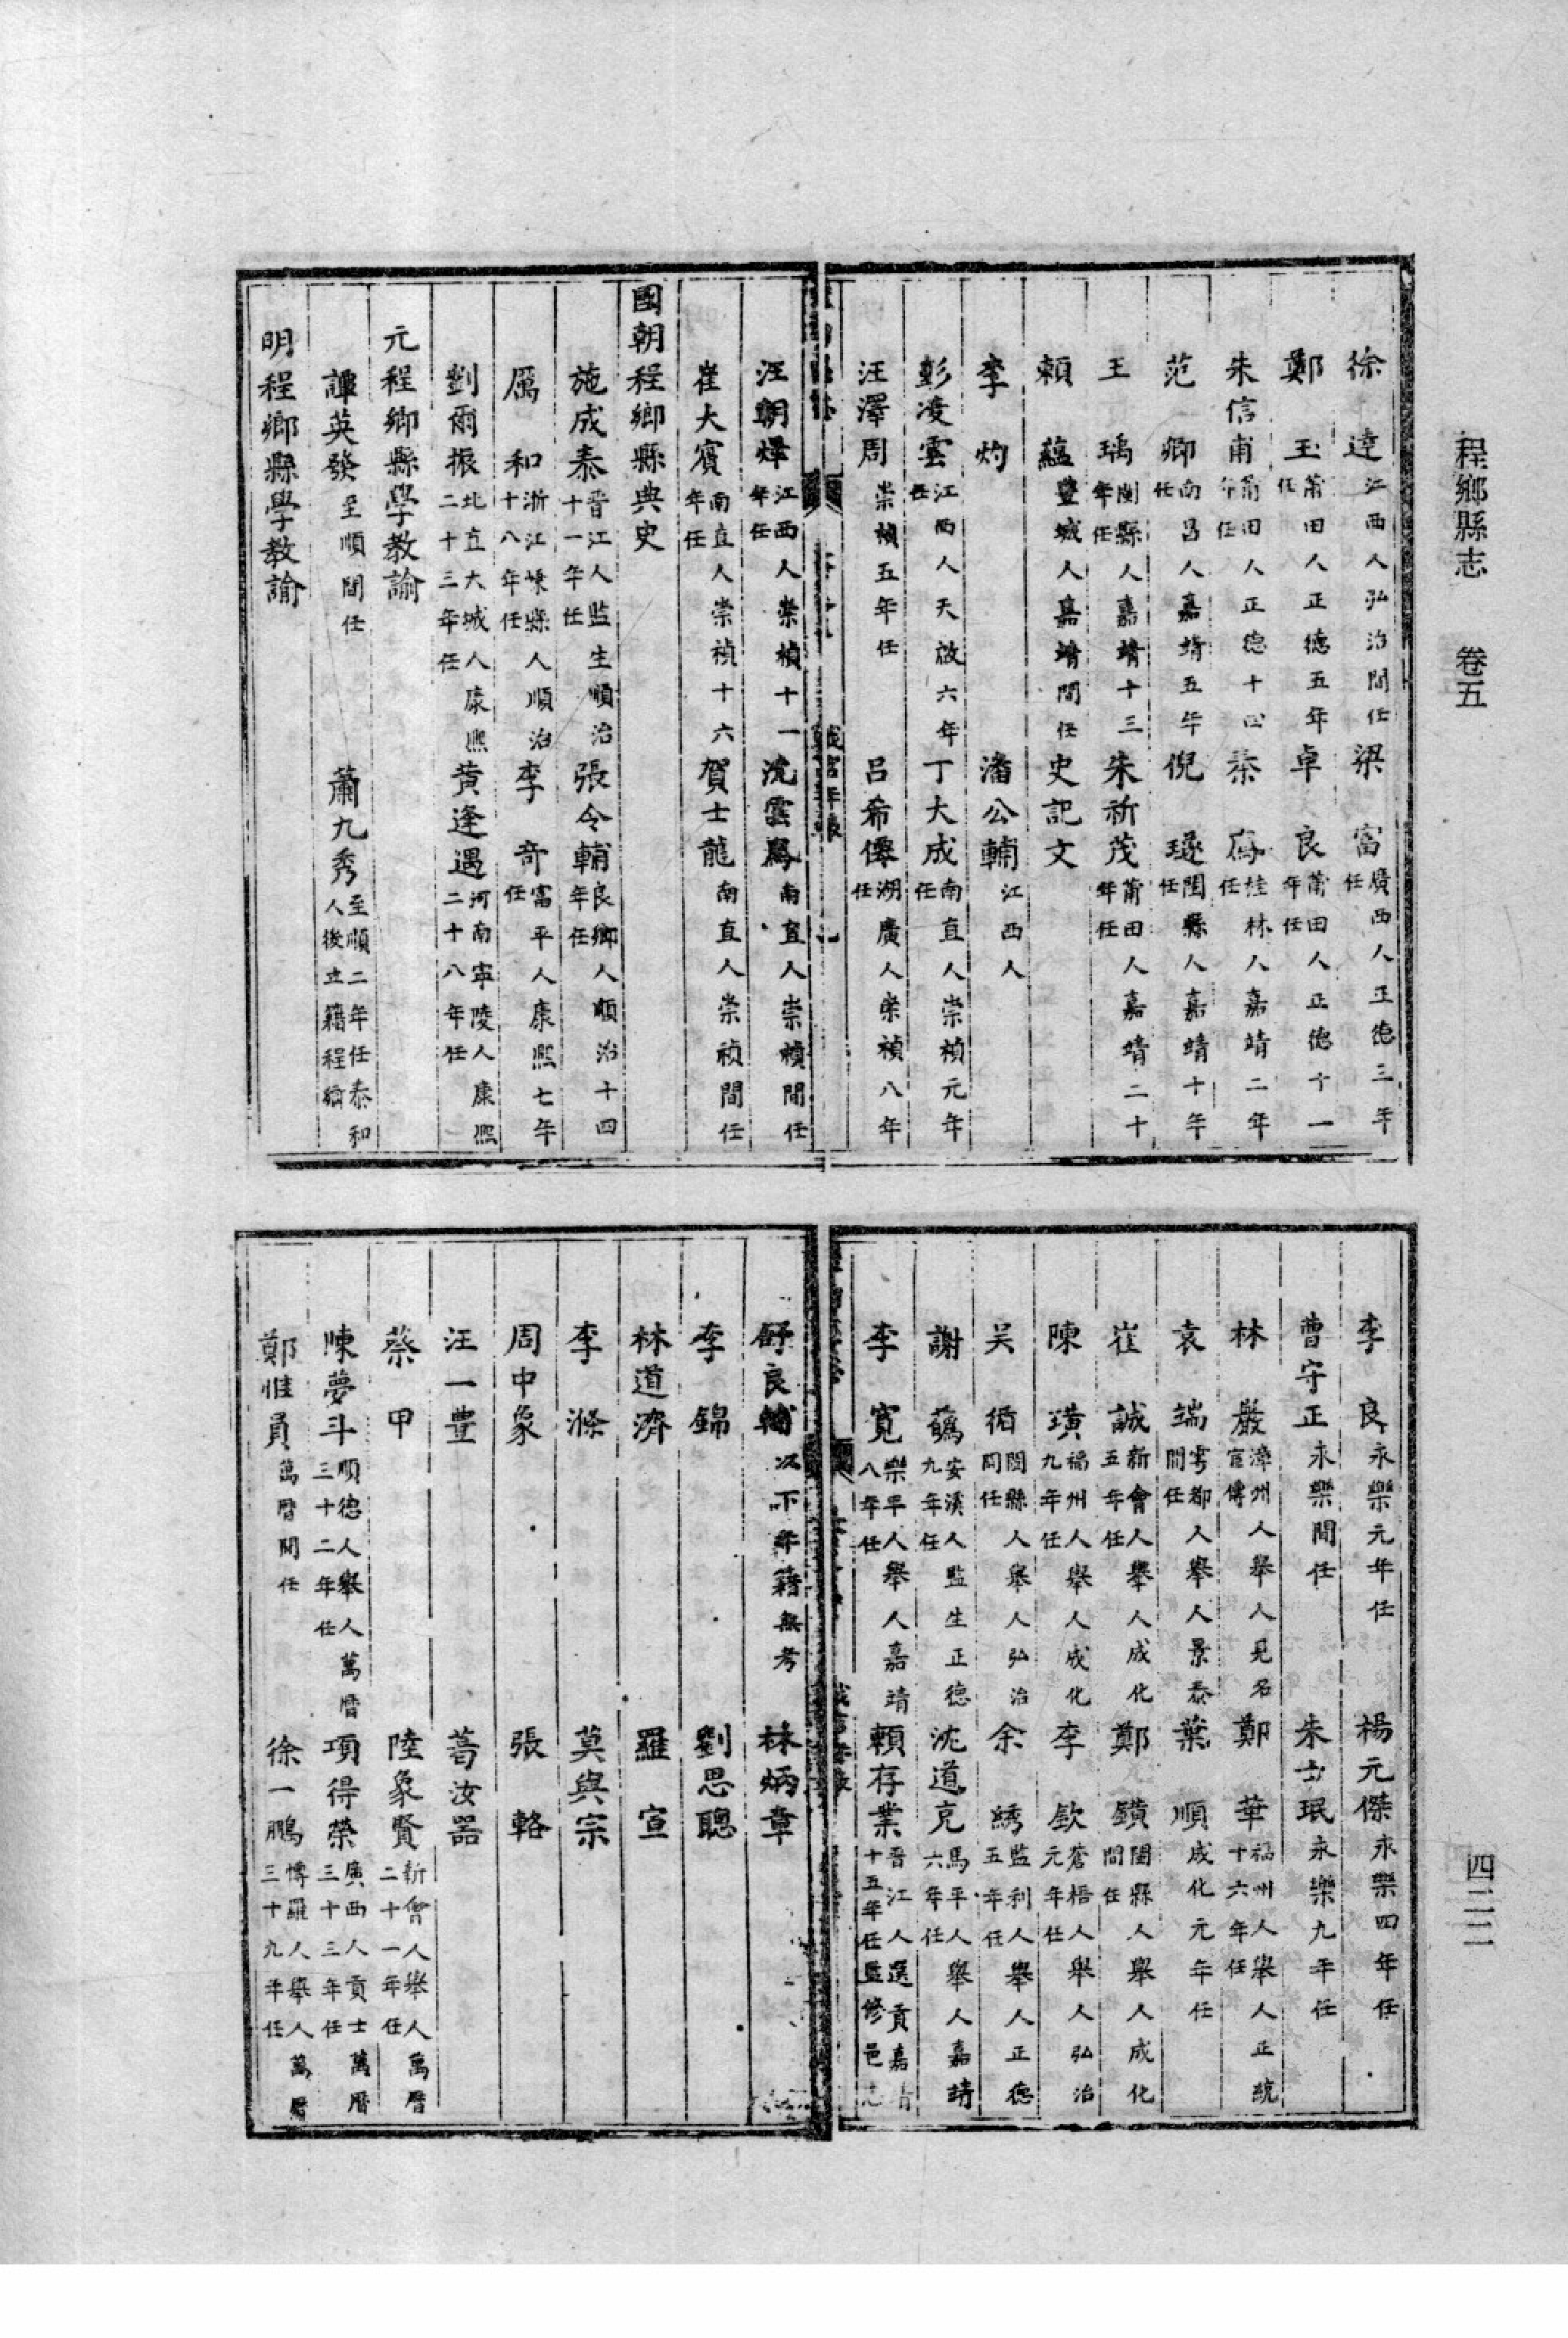 程鄉縣志 卷五
四三二
徐達 江西人弘治間任 梁富 廣西人正德三年任
鄭玉 莆田人正德五年任 卓良 莆田人正德十一年任
朱信甫 莆田人正德十四年任 秦 桂林人嘉靖二年任
范卿 南昌人嘉靖五年任 倪璲 閩縣人嘉靖十年任
王瑀 閩縣人嘉靖十三年任 朱祈茂 莆田人嘉靖二十年任
賴蘊 豐城人嘉靖間任 史記文
李灼 潘公輔 江西人
彭凌雲 江西人天啟六年任 丁大成 南直人崇禎元年任
汪澤周 崇禎五年任 呂希僎 湖廣人崇禎八年任
汪朝煒 江西人崇禎十一年任 沈雲鳳 南直人崇禎間任
崔大賓 南直人崇禎十六年任 賀士龍 南直人崇禎間任
國朝程鄉縣典史
施成泰 晉江人監生順治十一年任 張令輔 良鄉人順治十四年任
厲和 浙江嵊縣人順治十八年任 李奇 富平人康熙七年任
劉爾振 北直大城人康熙二十三年任 黃逢遇 河南寧陵人康熙二十八年任
元程鄉縣學教諭
譚英發 至順間任 蕭九秀 至順二年任泰和人後立籍程鄉
明程鄉縣學教諭
李良 永樂元年任 楊元傑 永樂四年任
曹守正 永樂間任 朱士珉 永樂九年任
林巖 漳州人舉人見名宦傳 鄭華 福州人舉人正統十六年任
袁端 雩都人舉人景泰間任 葉順 成化元年任
崔誠 新會人舉人成化五年任 鄭鐀 閩縣人舉人成化間任
陳璜 福州人舉人成化九年任 李欽 蒼梧人舉人弘治元年任
吳循 閩縣人舉人弘治間任 余綉 監利人舉人正德五年任
謝 安溪人監生正德九年任 沈道克 馬平人舉人嘉靖六年任
李寬 樂平人舉人嘉靖八年任 賴存業 晉江人選貢嘉靖十五年任監修邑志
舒良輔 以下年籍無考 林炳章
李錦 劉思聰
林道濟 羅宣
李滌 莫與宗
周中象 張輅
汪一豊 葛汝器
蔡甲 陸象賢 新會人舉人萬曆二十一年任
陳夢斗 順德人舉人萬曆三十二年任 項得榮 廣西人貢士萬曆三十三年任
鄭惟員 萬曆間任 徐一鵬 博羅人舉人萬曆三十九年任